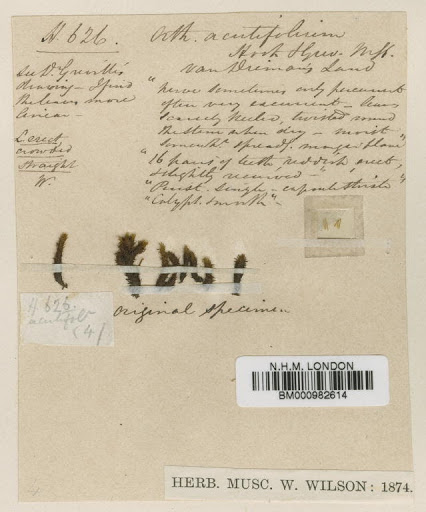 H. 626.
Orth. acutifolium
Hook & Grev. Mss.
Van Dieman's Land
see Dr Greville's
drawing - I find
the leaves more
linear -
L. erect
crowded
straight
W.
"nerve sometimes only percurrent
often very excurrent - leaves
scarcely keeled, twisted round
the stem when dry - moist
somewht spreadg. margin plane"
"16 pairs of teeth, reddish, erect,
& slightly recurved -"
"Perist. single - capsule striate"
"Calypt. smooth"-
H 626.
acutifol
(4)
original specimen
N.H.M. LONDON
BM000982614
HERB. MUSC. W. WILSON: 1874.